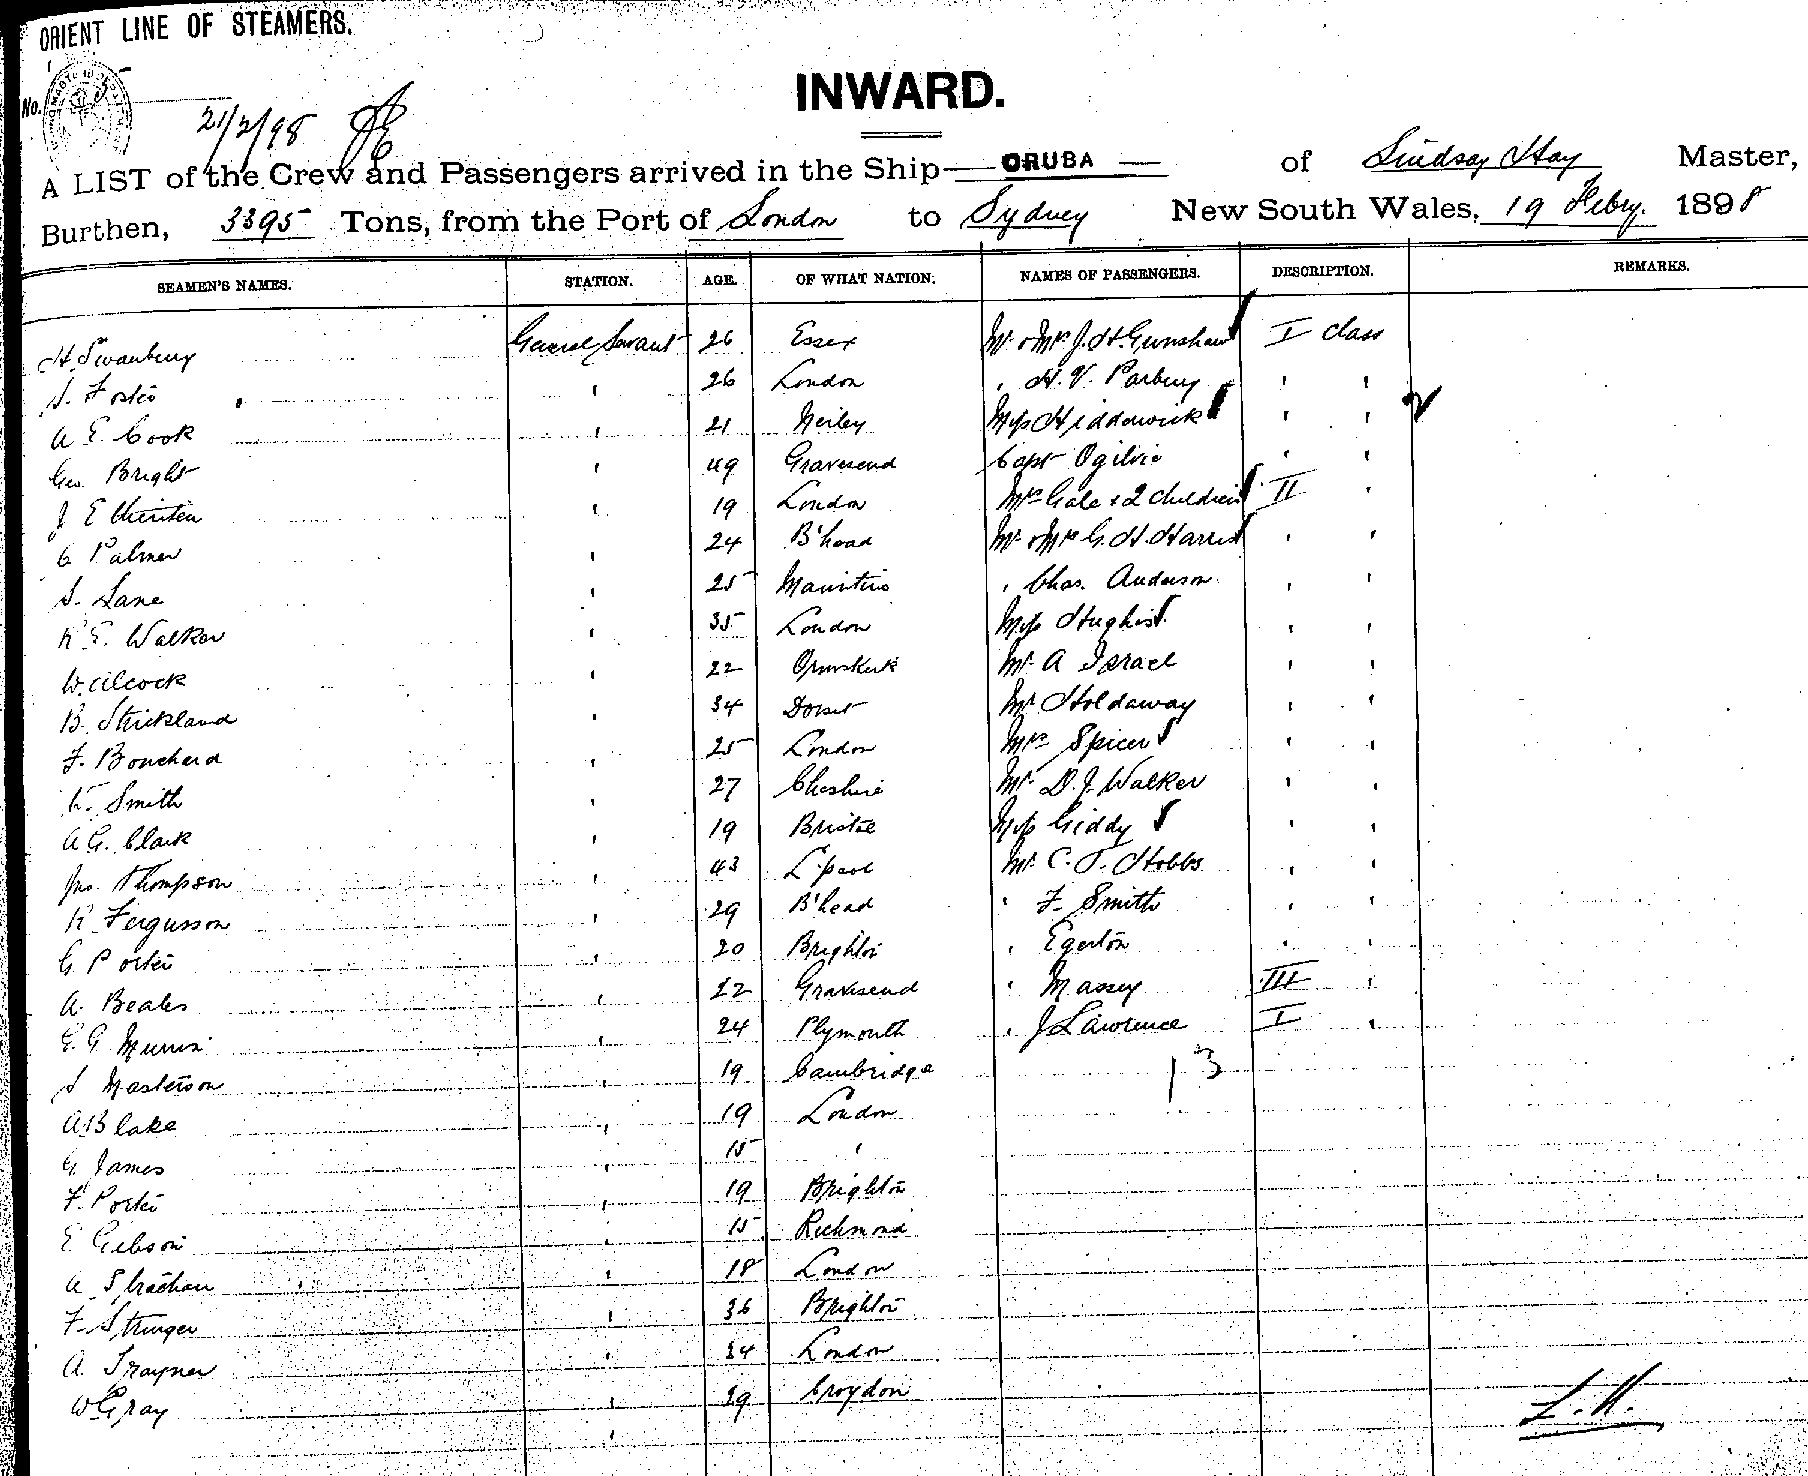 ORIENT LINE OF STEAMERS.
INWARD.
No.
21/2/98
A LIST of the Crew and Passengers arrived in the Ship ORUBA of Lindsay Hay Master,
Burthen, 3395 Tons, from the Port of London to Sydney New South Wales, 19 Febry. 1898
SEAMEN'S NAMES. STATION. AGE. OF WHAT NATION. NAMES OF PASSENGERS. DESCRIPTION. REMARKS.
H. Swanbury General Servant 26 Essex Mr & Mrs J. H. Grinshaw I Class
S. Foster ' 26 London ' H. V. Parbury ' '
A E Cook ' 21 Miss Hiddlewick ' '
Geo. Bright ' 49 Gravesend Capt Ogilvie ' '
J E ' 19 London Mrs Gale & 2 children II '
C Palmer ' 24 B'head Mr & Mrs G. H. Harris ' '
S. Lane ' 25 Mauritius ' Chas. Anderson ' '
R E. Walker ' 35 London Miss Hughes ' '
W. Alcock ' 22 Ormskirk Mr. A Israel ' '
B. Strickland ' 34 Dorset Mr. Holdaway ' '
F. Bouchard ' 25 London Mrs Spicer ' '
Smith ' 27 Cheshire Mr. D. J. Walker ' '
A G. Clark ' 19 Bristol Miss Giddy ' '
Jno. Thompson ' 43 L'pool Mr. C. T. Hobbs ' '
R Fergusson ' 29 B'head ' F. Smith ' '
G Porter ' 20 Brighton ' Egerton ' '
A. Beales ' 22 Gravesend ' Massey III '
E. G ' 24 Plymouth ' J Lawrence I '
S Masterson ' 19 Cambridge 13
A Blake ' 19 London
G James ' 15 '
F. Porter ' 19 Brighton
E Gibson ' 15 Richmond
A Strachan ' 18 London
F. Stringer ' 36 Brighton
A. Trayner ' 34 London
W Gray ' 29 Croydon
L. H.